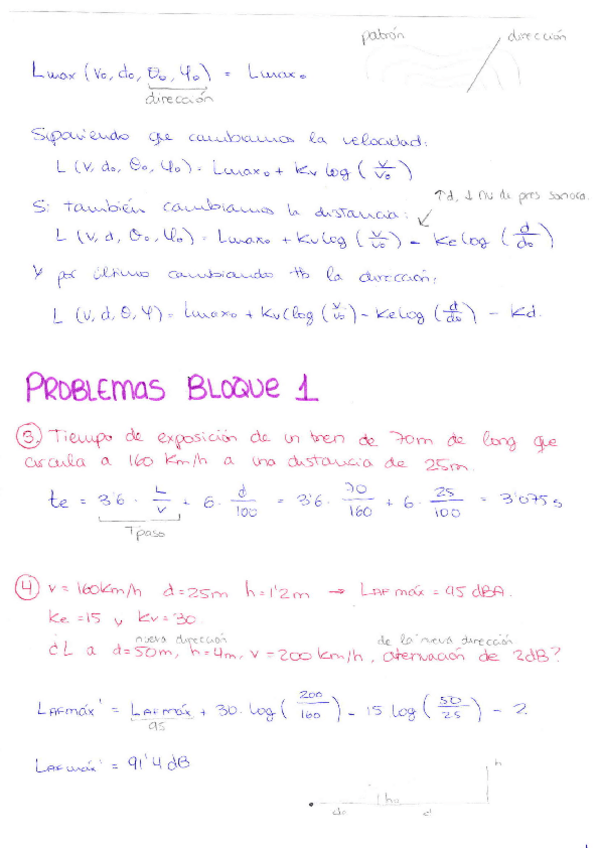 patrón dirección
Lmax (v₀, d₀, θ₀, φ₀) = Lmax₀
dirección
Suponiendo que cambiamos la velocidad:
L (v, d₀, θ₀, φ₀) = Lmax₀ + Kv log (v/v₀)
↑d, ↓ niv de pres sonora.
Si también cambiamos la distancia:
L (v, d, θ₀, φ₀) = Lmax₀ + Kv log (v/v₀) - Ke log (d/d₀)
Y por último cambiando tb la dirección:
L (v, d, θ, φ) = Lmax₀ + Kv (log (v/v₀) - Ke log (d/d₀) - Kd.
PROBLEMAS BLOQUE 1
③ Tiempo de exposición de un tren de 70m de long que
circula a 160 Km/h a una distancia de 25m.
te = 3'6 · L/v + 6 · d/100 = 3'6 · 70/160 + 6 · 25/100 = 3'075 s
Tpaso
④ v = 160km/h d=25m h=1'2m → LAFmáx = 95 dBA.
Ke=15 y Kv=30
nueva dirección de la nueva dirección
¿L a d=50m, h=4m, v=200 km/h, atenuación de 2dB?
LAFmáx' = LAFmáx + 30 · log (200/160) - 15 log (50/25) - 2
95
LAFmáx' = 91'4 dB
h
h₀
d₀ d